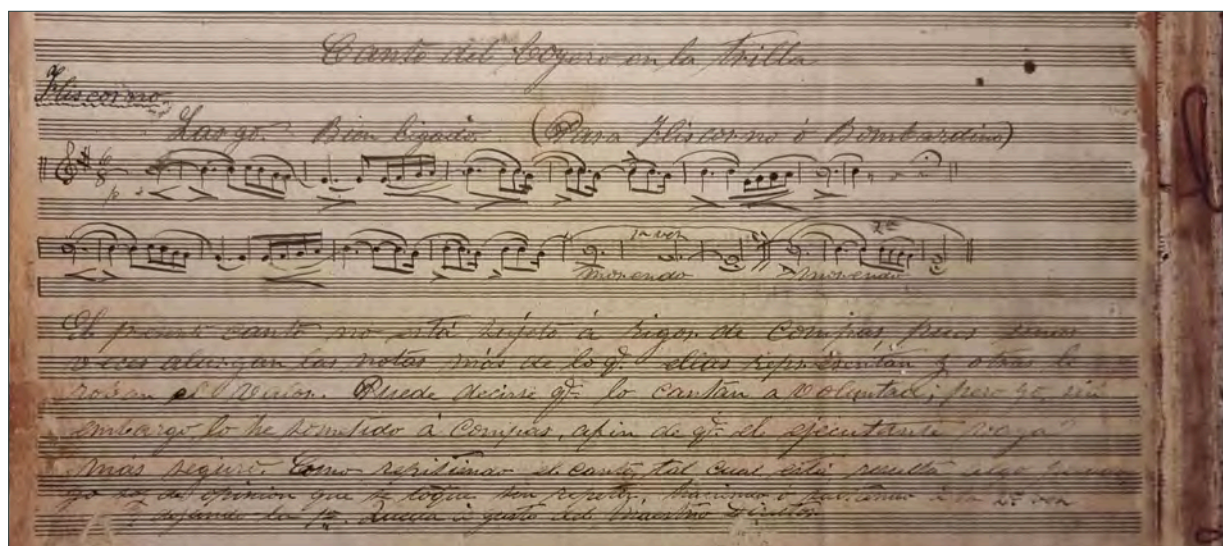 Canto del Boyero en la Trilla
Fliscorno
Largo. Bien ligado. (Para Fliscorno ó Bombardino)
p
1a vez
2a
morendo
morendo
El pnte. canto no está sujeto á rigor de compás, pues unas
veces alargan las notas más de lo q.e ellas representan y otras le
roban el valor. Puede decirse q.e lo cantan a voluntad; pero yo, sin
embargo, lo he sometido á compás, afin de q.e el ejecutante vaya
más seguro. Como repitiendo el canto, tal cual está resulta algo
yo soy de opinion que se toque sin repetir, haciendo ó saltando á la 2a vez
y dejando la 1a. Queda á gusto del Maestro Director.